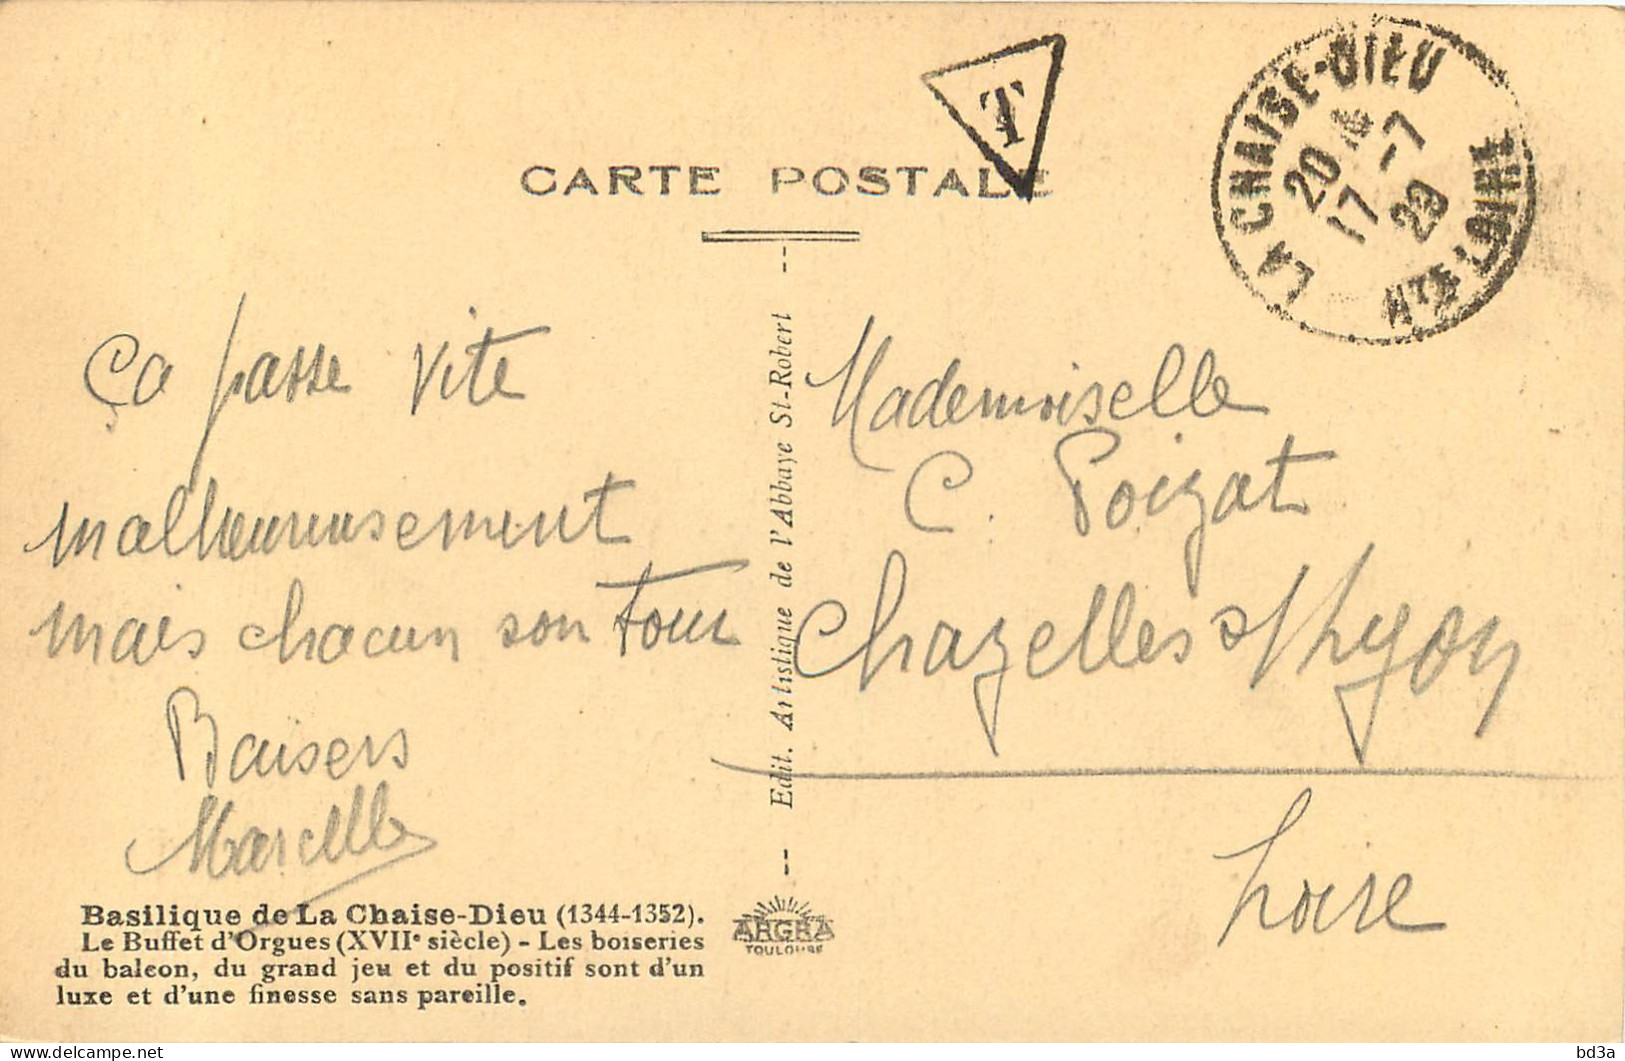 T
CARTE POSTALE
LA CHAISE-DIEU
20
17 -7
29
HTE LOIRE
Ça passe vite
malheureusement
mais chacun son tour
Baisers
Marcelle
Mademoiselle
C. Poizat
Chazelles s/ Lyon
Loire
Edit. Artistique de l'Abbaye St-Robert
Basilique de La Chaise-Dieu (1344-1352).
Le Buffet d'Orgues (XVIIe siècle) - Les boiseries
du balcon, du grand jeu et du positif sont d'un
luxe et d'une finesse sans pareille.
ARGRA
TOULOUSE
bd3a